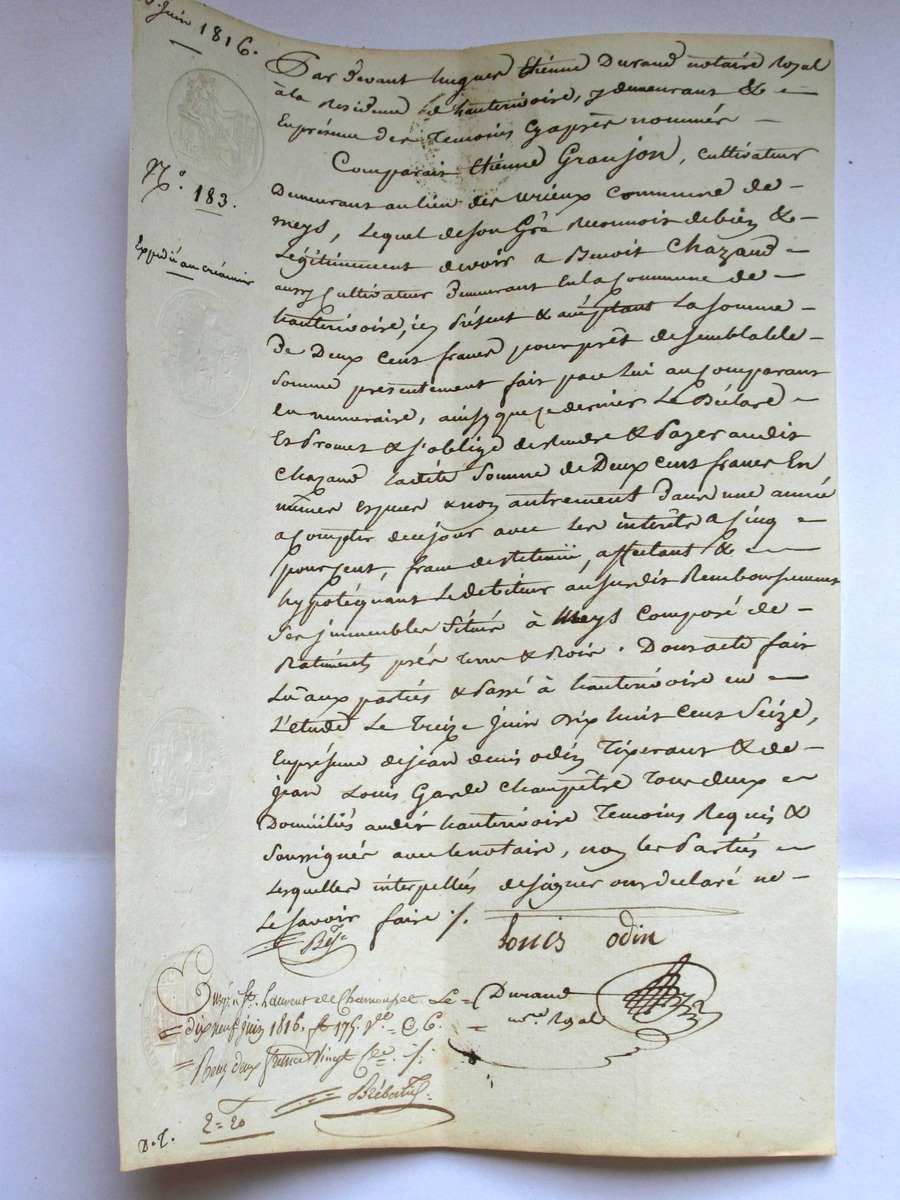 Juin 1816.
N.º 183.
Expédié au créancier
Par devant hugues Etiénne Durand notaire Royal
à la Residence de hauterivoire, y demeurant & -
En présence des Temoins cyaprès nommés -
Comparait Etiénne Granjon, cultivateur
Demeurant au lieu des vrieux commune de -
meys, Lequel de son Gré Reconnoit debien & -
Légitimement devoir a Benoit Chazaud -
aussy Cultivateur Demeurant En la Commune de -
hauterivoire, icy Présent & acceptant La Somme -
De Deux cent francs pour prèt de semblable -
Somme presentement fait par Lui au comparant
en numeraire, ainsy que ce dernier Le Déclare -
Et Promet & s'oblige de Rendre & Payer audit
Chazaud Ladite Somme de Deux cent francs En
mêmes especes & non autrement Dans une année
a compter de ce jour avec Les interêts a Cinq -
pour cent, franc de Retenüe, affectant & -
hypotéquant Le debiteur au susdit Remboursement
Ses immeubles Situés à Meys Composé de -
Batiments prés Terre & Bois. Dont acte fait
Lu aux parties & Passé à hauterivoire en -
L'étude Le Treize Juin dix huit Cent Seize,
En présence de jean denis odin Tixerant & de -
jean Louis Garde Champêtre Tous deux -
Domiciliés audit hauterivoire Temoins Requis &
Soussignés avec Le notaire, non les Parties -
Lesquelles interpellées de signer ont declaré ne -
Le savoir faire %.
Louis odin
Durand
nre Royal
Enrgé a St. Laurent de Chamousset Le =
= dix neuf juin 1816. fo 175. Vo = C. 6. =
= Reçu deux francs Vingt Ces. %
D. T. 2 = 20